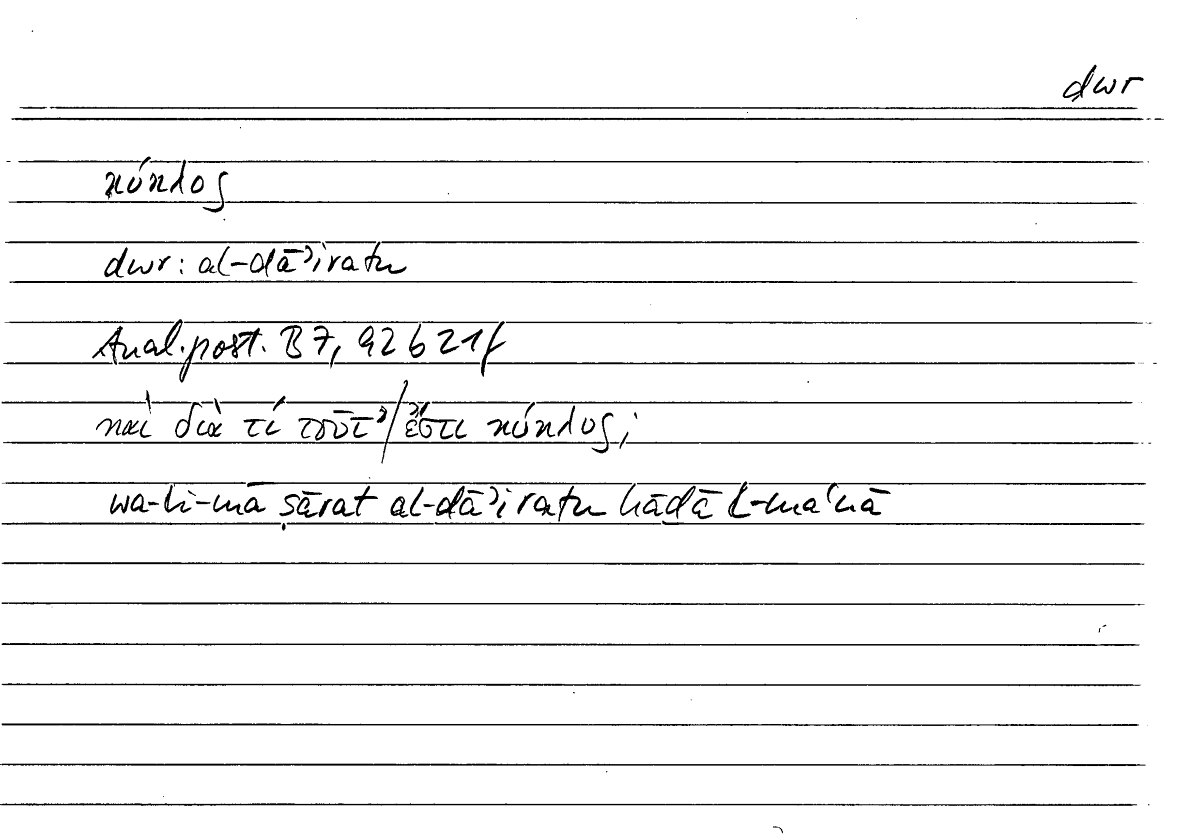 dwr
κύκλος
dwr: al-dāʾiratu
Anal.post. B7, 92 b 21f
καὶ διὰ τί τοῦτ’/ἔστι κύκλος;
wa-li-mā ṣārat al-dāʾiratu hāḏā l-maʿnā